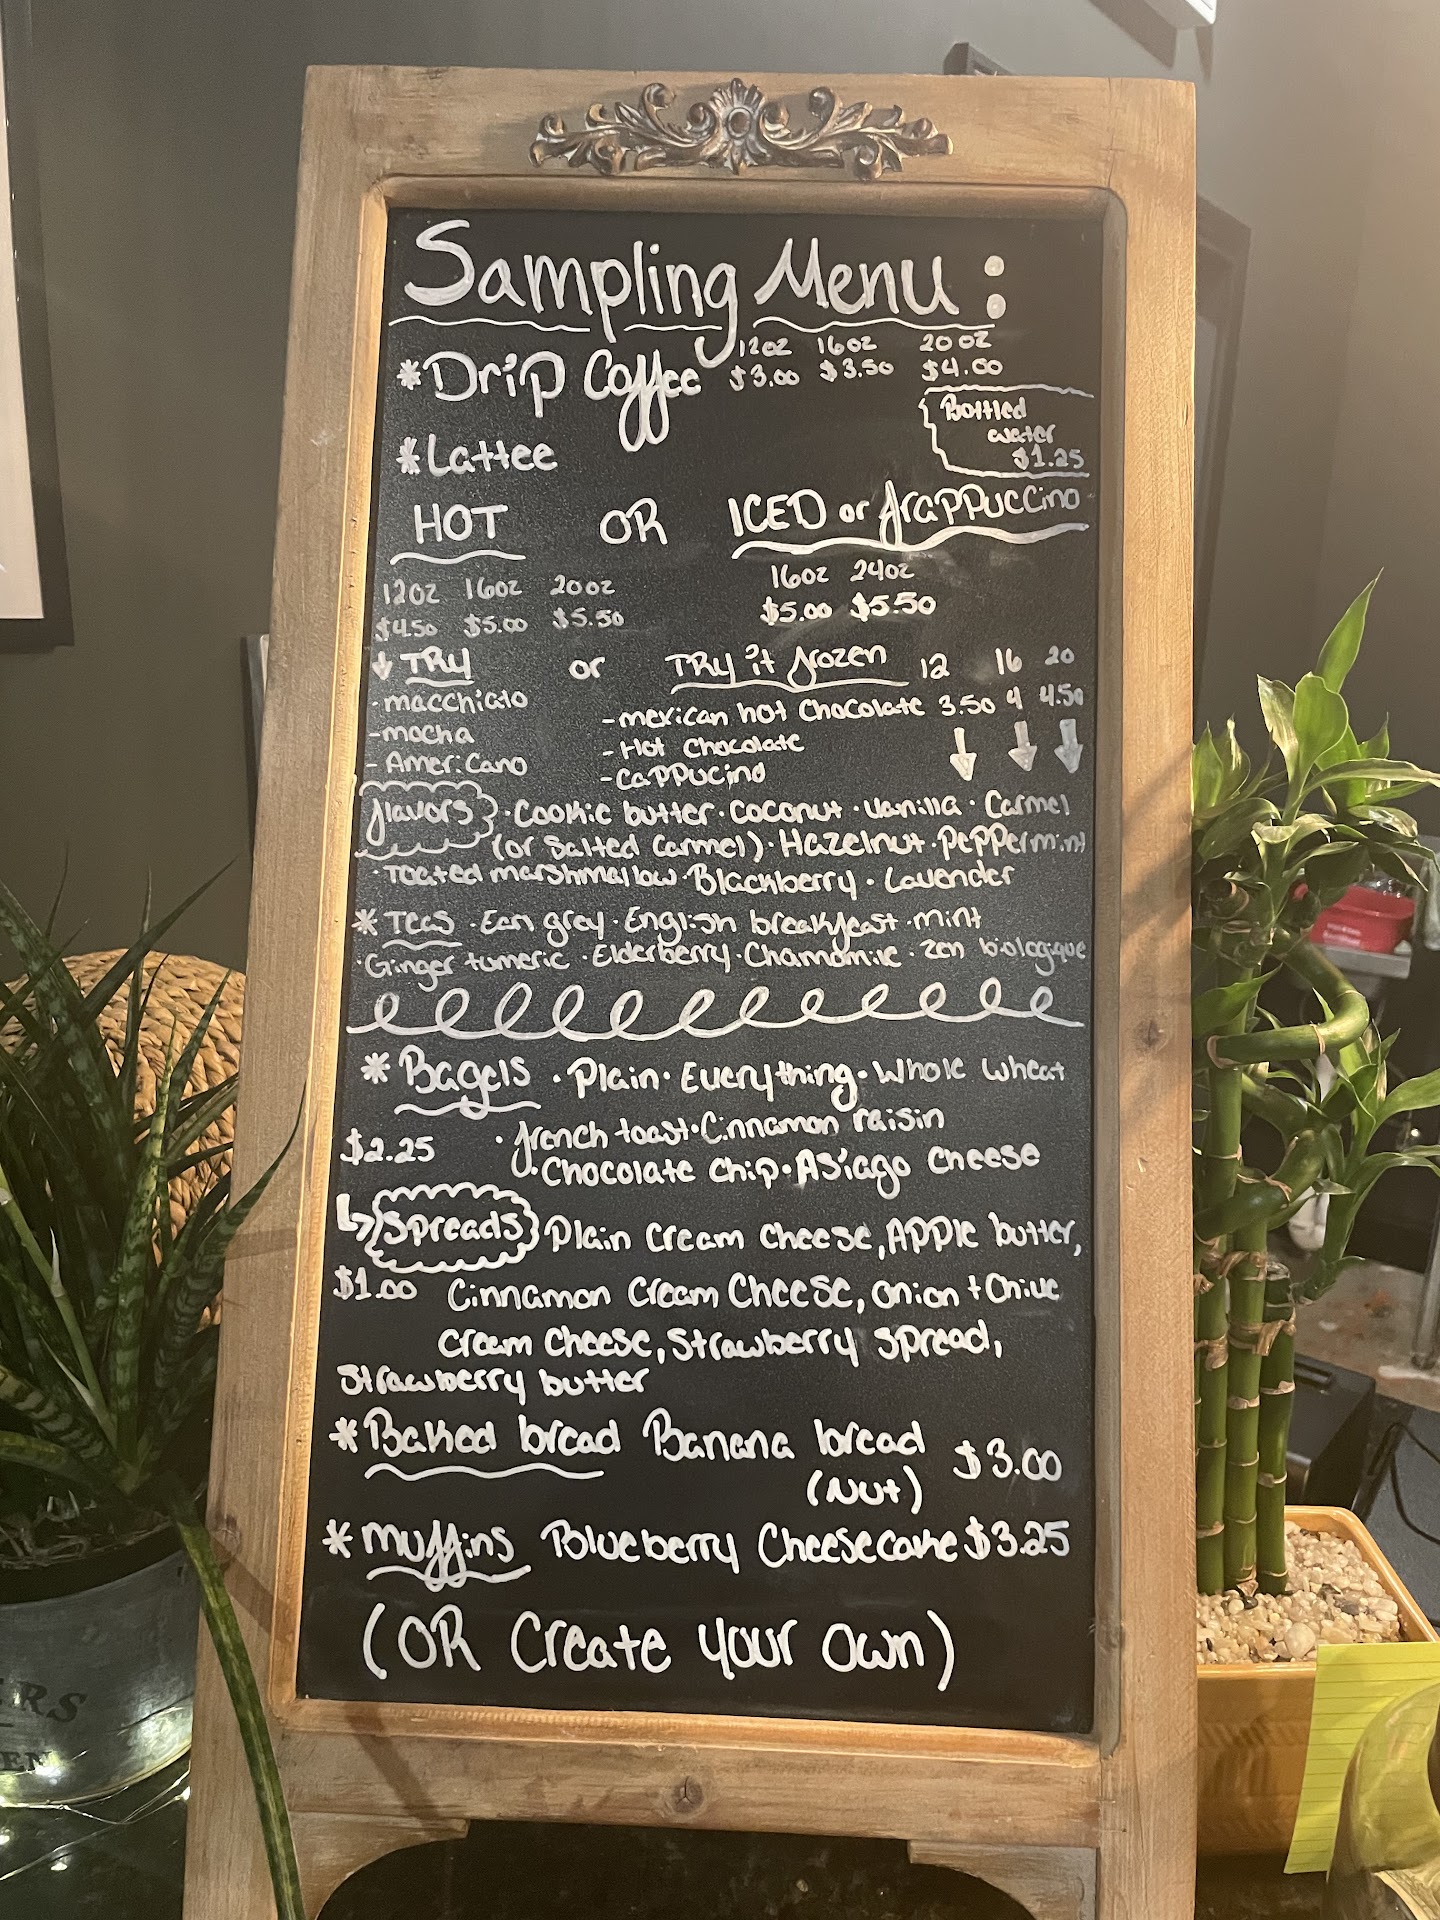 Sampling Menu:
12oz 16oz 20oz
*Drip Coffee $3.00 $3.50 $4.00
Bottled
water
$1.25
*Lattee
HOT OR ICED or frappuccino
12oz 16oz 20oz 16oz 24oz
$4.50 $5.00 $5.50 $5.00 $5.50
↓ TRY or TRY it frozen 12 16 20
-macchiato -mexican hot Chocolate 3.50 4 4.50
-mocha -Hot Chocolate
-Americano -Cappucino
flavors · Cookie butter · Coconut · Vanilla · Carmel
(or Salted Carmel) · Hazelnut · Peppermint
· Toated marshmallow · Blackberry · Lavender
* Teas · Earl grey · English breakfast · mint
· Ginger tumeric · Elderberry · Chamomile · Zen biologique
* Bagels · Plain · Everything · Whole wheat
$2.25 · french toast · Cinnamon raisin
· Chocolate Chip · Asiago Cheese
Spreads · Plain Cream Cheese, Apple butter,
$1.00 Cinnamon Cream Cheese, Onion + Chive
Cream Cheese, Strawberry Spread,
Strawberry butter
*Baked bread Banana bread $3.00
(Nut)
* Muffins Blueberry Cheesecake $3.25
(OR Create your Own)